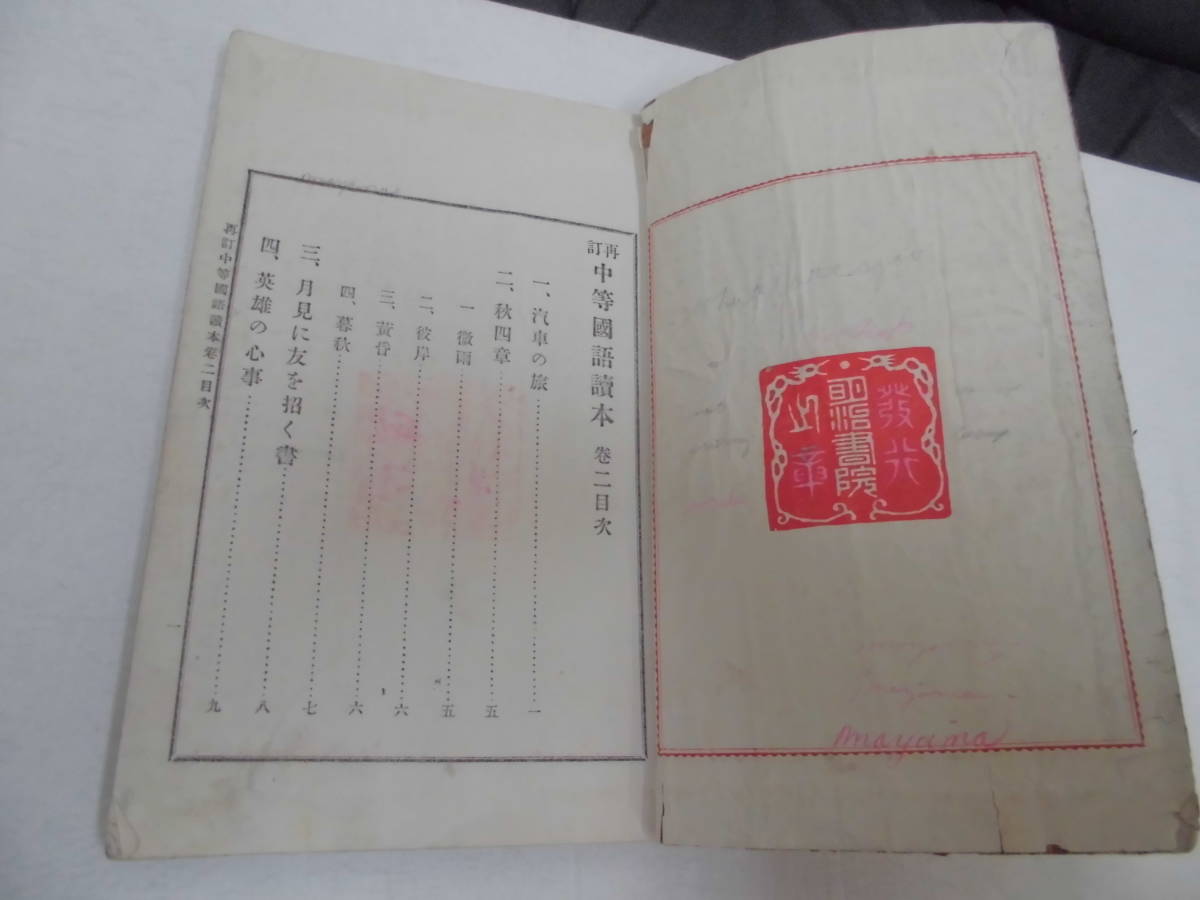 發行
明治書院
之章
mayama
再訂 中等國語讀本 卷二目次
一、汽車の旅 一
二、秋四章 五
一 微雨 五
二、彼岸 六
三、黃昏 六
四、暮秋 七
三、月見に友を招く書 八
四、英雄の心事 九
再訂中等國語讀本卷二目次
一